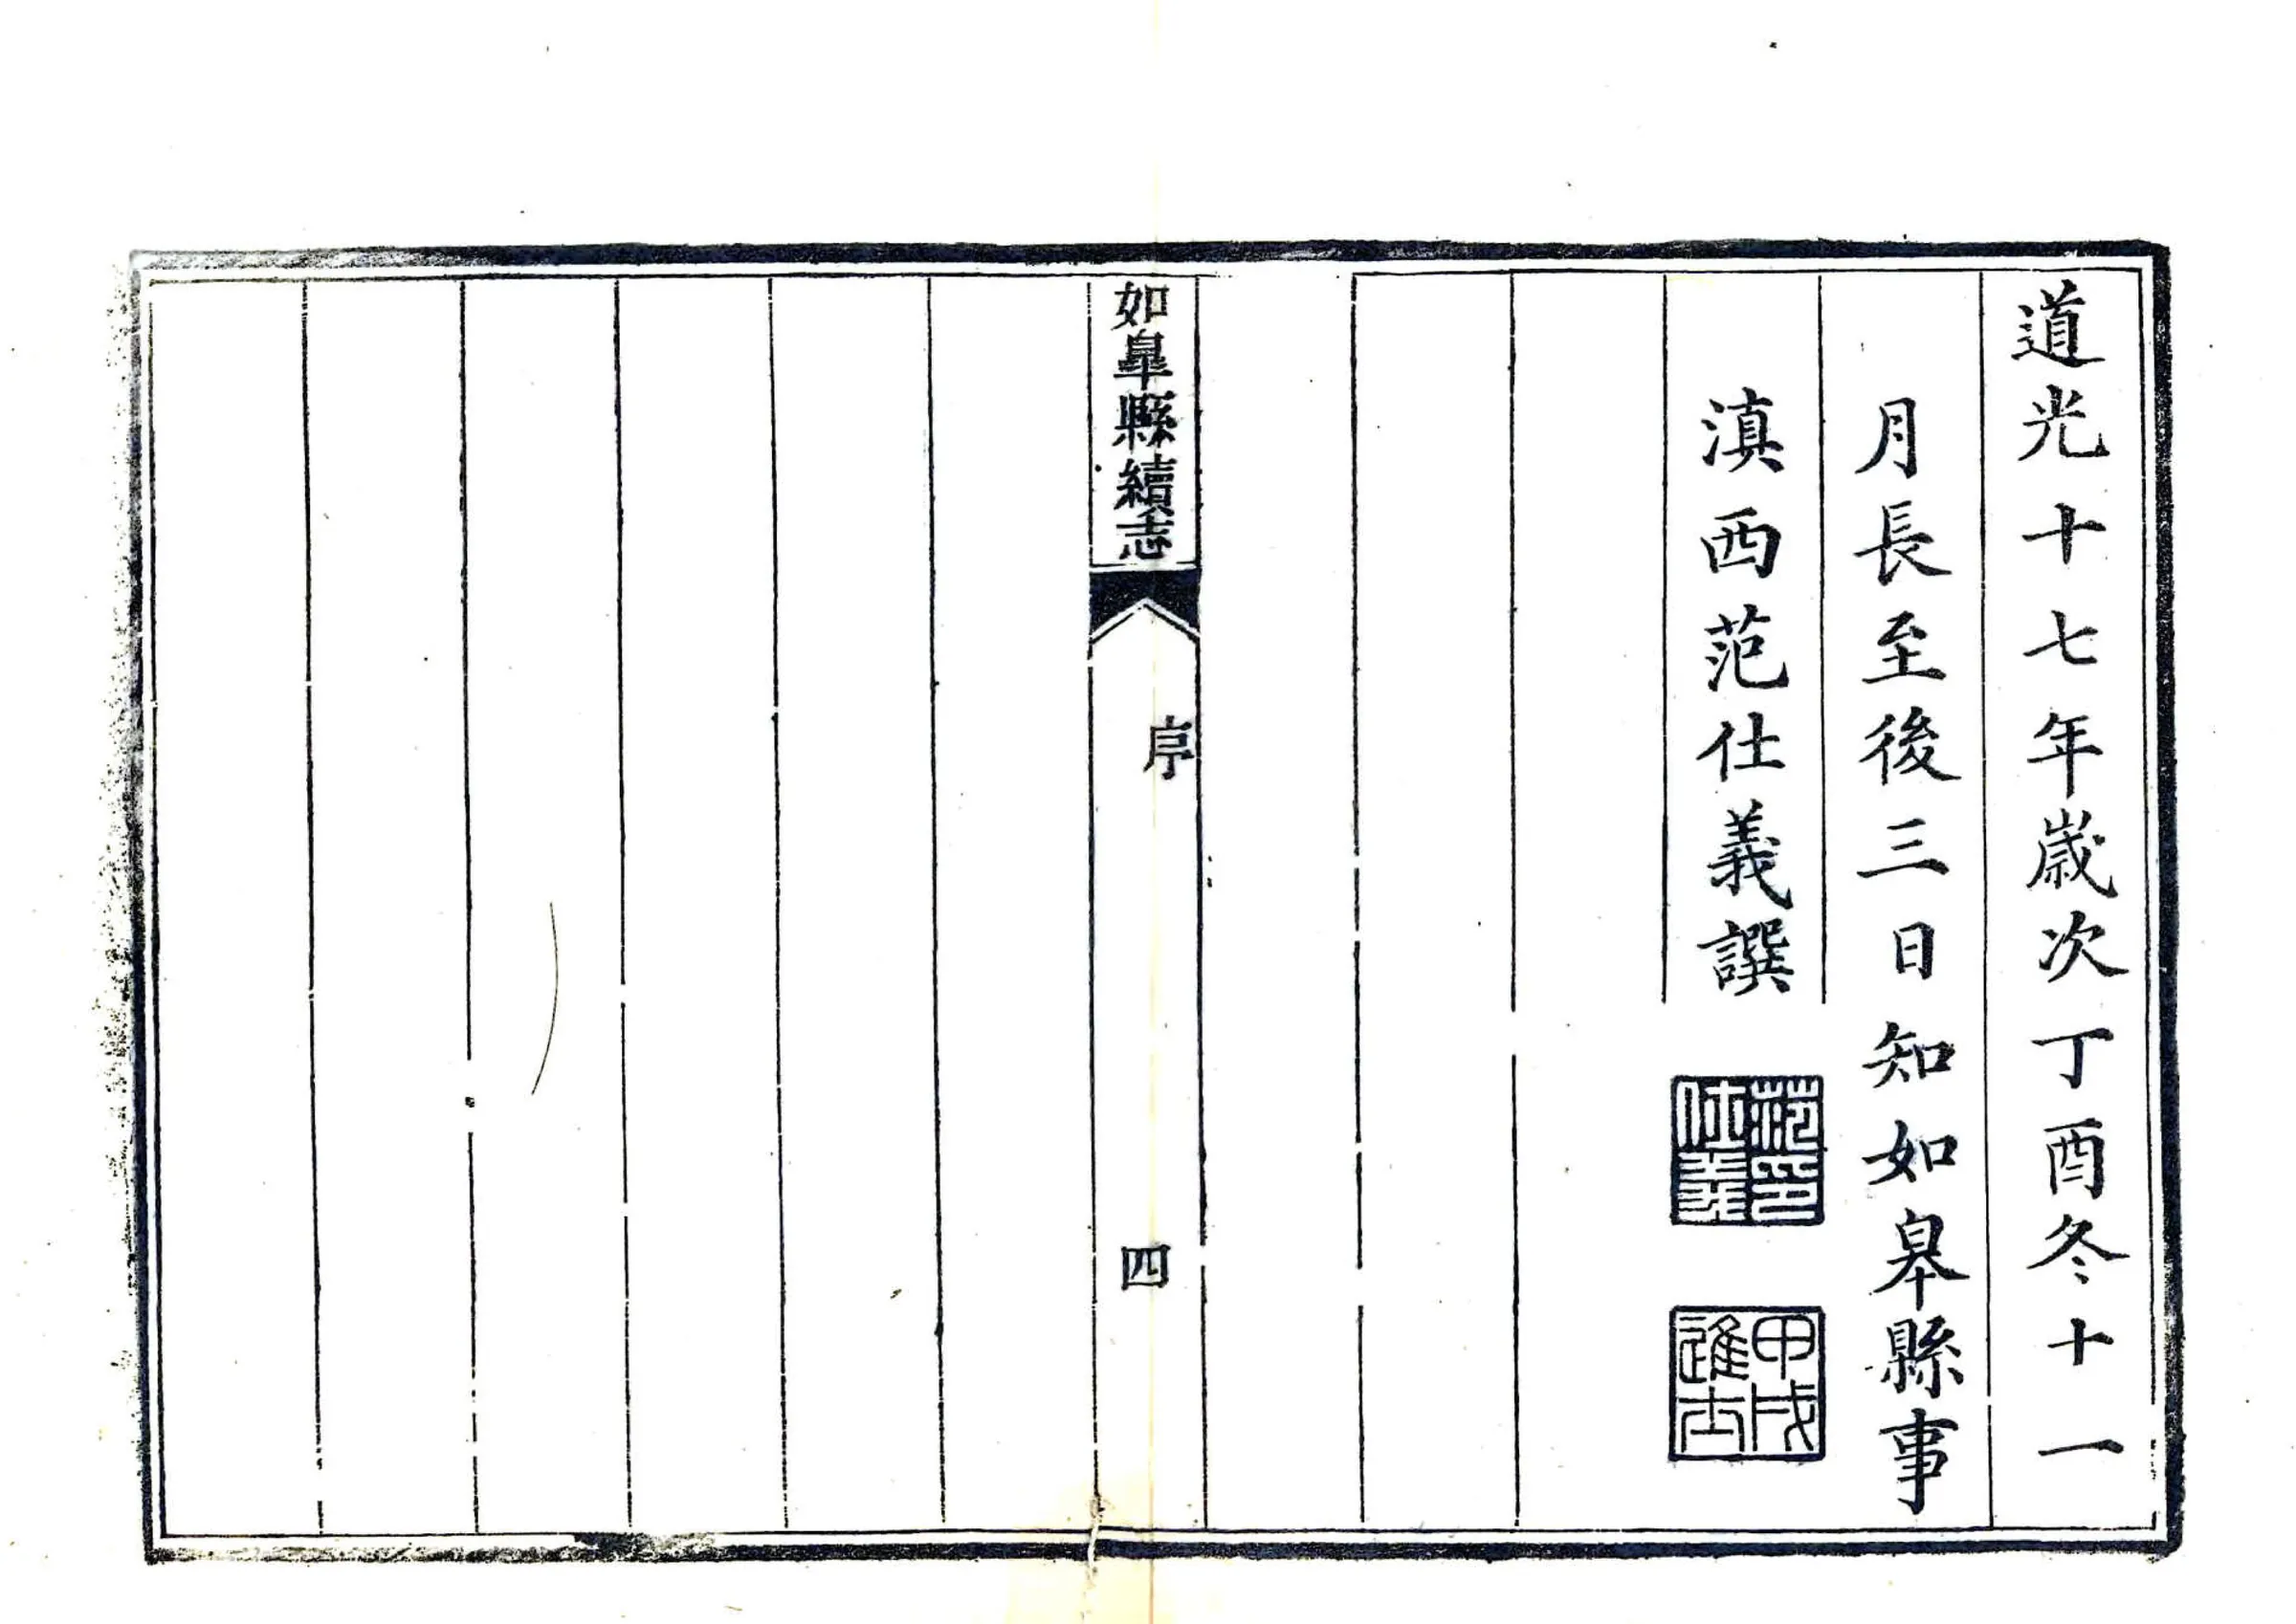 道光十七年歲次丁酉冬十一
月長至後三日知如皋縣事
滇西范仕義譔
范印仕義
甲戌進士
如皐縣續志
序
四